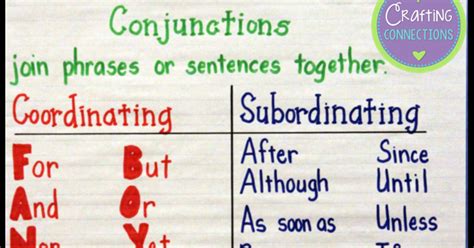 Crafting
CONNECTIONS
Conjunctions
join phrases or sentences together.
Coordinating
Subordinating
For But
After Since
And Or
Although Until
Nor Yet
As soon as Unless